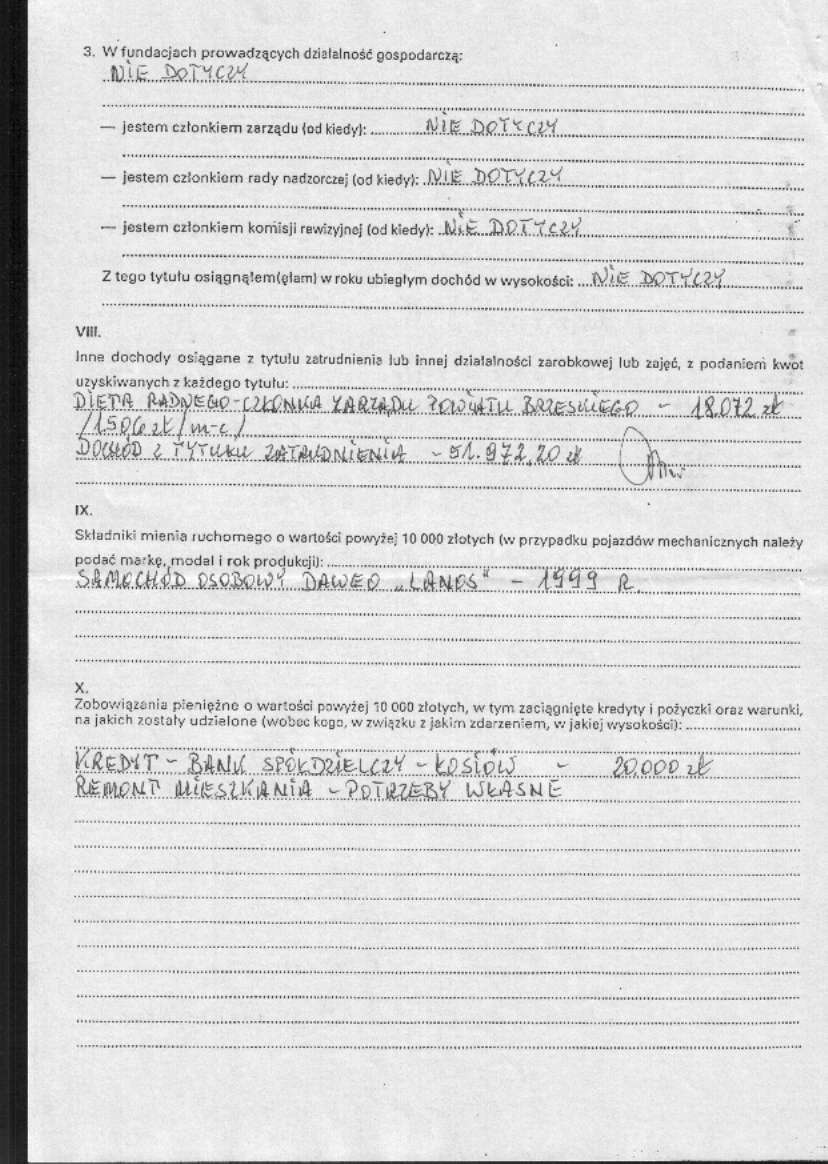 3. W fundacjach prowadzących działalność gospodarczą:
NIE DOTYCZY
— jestem członkiem zarządu (od kiedy): NIE DOTYCZY
— jestem członkiem rady nadzorczej (od kiedy): NIE DOTYCZY
— jestem członkiem komisji rewizyjnej (od kiedy): NIE DOTYCZY
Z tego tytułu osiągnąłem(ęłam) w roku ubiegłym dochód w wysokości: NIE DOTYCZY
VIII.
Inne dochody osiągane z tytułu zatrudnienia lub innej działalności zarobkowej lub zajęć, z podaniem kwot
uzyskiwanych z każdego tytułu:
DIETA RADNEGO-CZŁONKA ZARZĄDU POWIATU BRZESKIEGO - 18.072 zł
/1506 zł/m-c/
DOCHÓD Z TYTUŁU ZATRUDNIENIA - 51.972,20 zł
IX.
Składniki mienia ruchomego o wartości powyżej 10 000 złotych (w przypadku pojazdów mechanicznych należy
podać markę, model i rok produkcji):
SAMOCHÓD OSOBOWY DAWEO „LANOS" - 1999 R.
X.
Zobowiązania pieniężne o wartości powyżej 10 000 złotych, w tym zaciągnięte kredyty i pożyczki oraz warunki,
na jakich zostały udzielone (wobec kogo, w związku z jakim zdarzeniem, w jakiej wysokości):
KREDYT - BANK SPÓŁDZIELCZY - ŁOSIÓW - 20.000 zł
REMONT MIESZKANIA - POTRZEBY WŁASNE